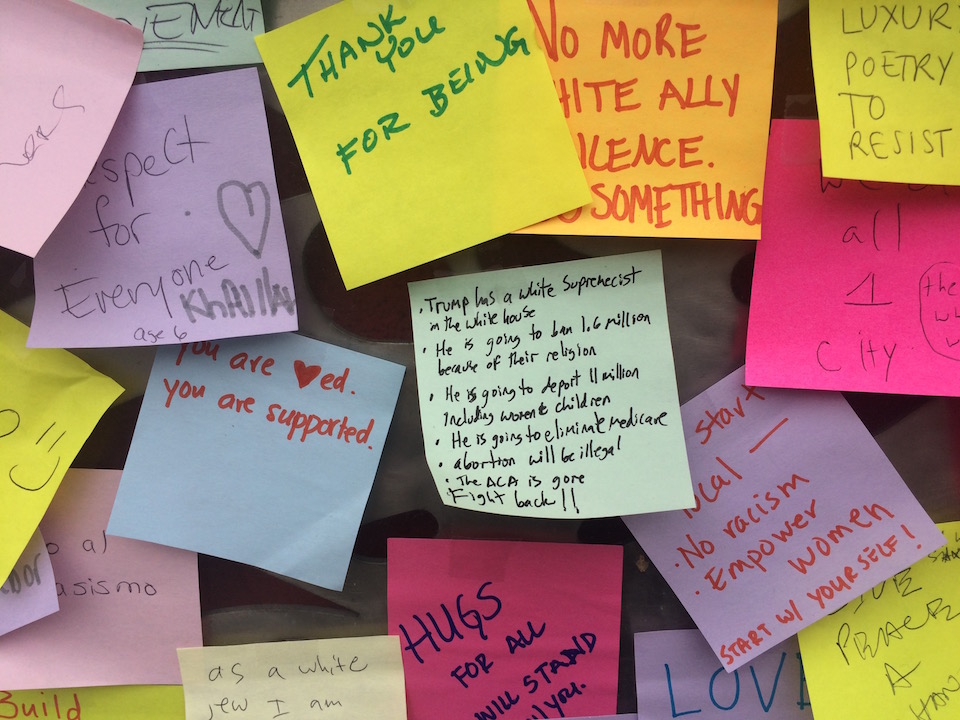 THANK
YOU
FOR BEING
NO MORE
WHITE ALLY
SILENCE.
SOMETHING
LUXUR
POETRY
TO
RESIST
Respect
for
Everyone
KhAllAV
age 6
all
1
city
the
you are ♥ed.
you are supported.
• Trump has a white Supremecist
in the white house
• He is going to ban 1.6 million
because of their religion
• He is going to deport 11 million
Including women & children
• He is going to eliminate medicare
• abortion will be illegal
• The ACA is gone
Fight back!!
Start
local —
• No racism
• Empower
women
START W/ YOURSELF!
o al
asismo
HUGS
FOR ALL
WILL STAND
YOU.
as a white
jew I am
LOVE
PEACE
A
Build